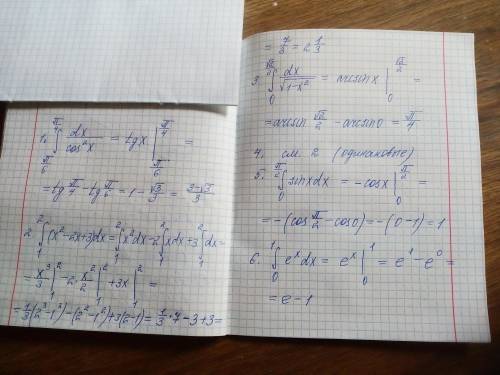 1. ∫_{π/6}^{π/4} dx/cos²x = tg x |_{π/6}^{π/4} =
= tg π/4 - tg π/6 = 1 - √3/3 = (3-√3)/3
2 ∫_1^2 (x²-2x+3)dx = ∫_1^2 x²dx - 2∫_1^2 xdx + 3∫_1^2 dx =
= x³/3 |_1^2 - 2·x²/2 |_1^2 + 3x |_1^2 =
= 1/3(2³-1³) - (2²-1²) + 3(2-1) = 1/3·7 - 3 + 3 =
= 7/3 = 2 1/3
3. ∫_0^{√2/2} dx/√(1-x²) = arcsin x |_0^{√2/2} =
= arcsin √2/2 - arcsin 0 = π/4
4. см. 2 (одинаковые)
5. ∫_0^{π/2} sinxdx = -cosx |_0^{π/2} =
= -(cos π/2 - cos0) = -(0-1) = 1
6. ∫_0^1 e^x dx = e^x |_0^1 = e^1 - e^0 =
= e - 1